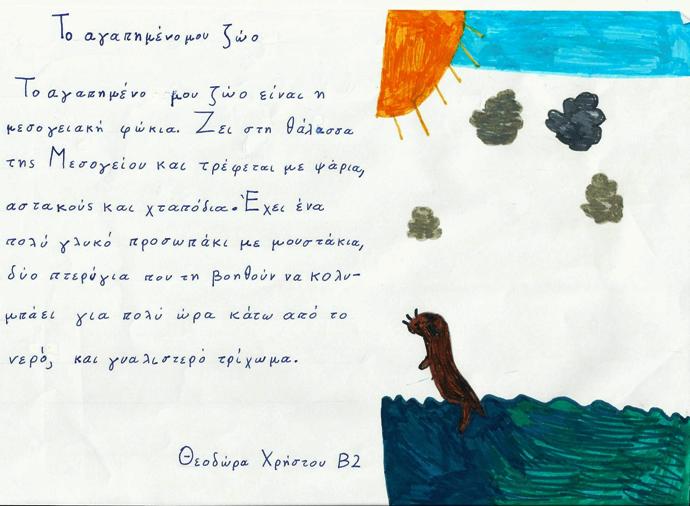 Το αγαπημένο μου ζώο
Το αγαπημένο μου ζώο είναι η
μεσογειακή φώκια. Ζει στη θάλασσα
της Μεσογείου και τρέφεται με ψάρια,
αστακούς και χταπόδια. Έχει ένα
πολύ γλυκό προσωπάκι με μουστάκια,
δύο πτερύγια που τη βοηθούν να κολυ-
μπάει για πολύ ώρα κάτω από το
νερό, και γυαλιστερό τρίχωμα.
Θεοδώρα Χρήστου Β2